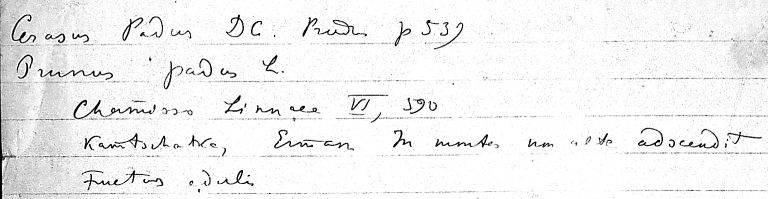 Cerasus Padus DC. Prodr p 539
Prunus padus L.
Chamisso Linnaea VI, 590
Kamtschatka, Erman In montes non alte adscendit
Fructus edulis